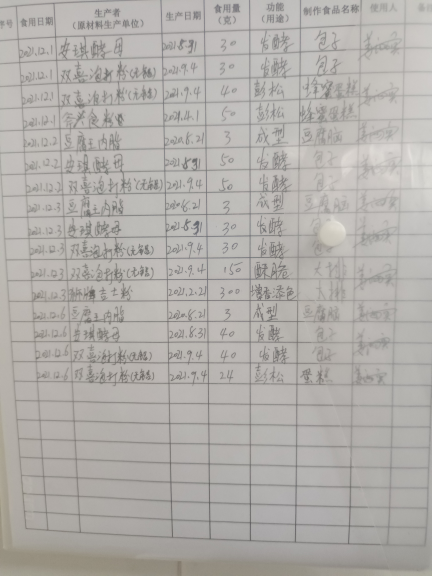 序号 食用日期 生产者（原材料生产单位） 生产日期 食用量（克） 功能（用途） 制作食品名称 使用人 备
2021.12.1 安琪酵母 2021.8.31 30 发酵 包子
2021.12.1 双喜泡打粉(无铝) 2021.9.4 30 发酵 包子
2021.12.1 双喜泡打粉(无铝) 2021.9.4 40 彭松 蜂蜜蛋糕
2021.12.1 食粉 2021.4.1 50 彭松 蜂蜜蛋糕
2021.12.2 豆腐王内脂 2020.8.21 3 成型 豆腐脑
2021.12.2 安琪酵母 2021.8.31 50 发酵 包子
2021.12.2 双喜泡打粉(无铝) 2021.9.4 50 发酵 包子
2021.12.3 豆腐王内脂 2020.8.21 3 成型 豆腐脑
2021.12.3 安琪酵母 2021.8.31 30 发酵 包子
2021.12.3 双喜泡打粉(无铝) 2021.9.4 30 发酵 包子
2021.12.3 双喜泡打粉(无铝) 2021.9.4 150 酥脆 大排
2021.12.3 吉士粉 2021.2.21 300 增香添色 大排
2021.12.6 豆腐王内脂 2020.8.21 3 成型 豆腐脑
2021.12.6 安琪酵母 2021.8.31 40 发酵 包子
2021.12.6 双喜泡打粉(无铝) 2021.9.4 40 发酵 包子
2021.12.6 双喜泡打粉(无铝) 2021.9.4 24 彭松 蛋糕